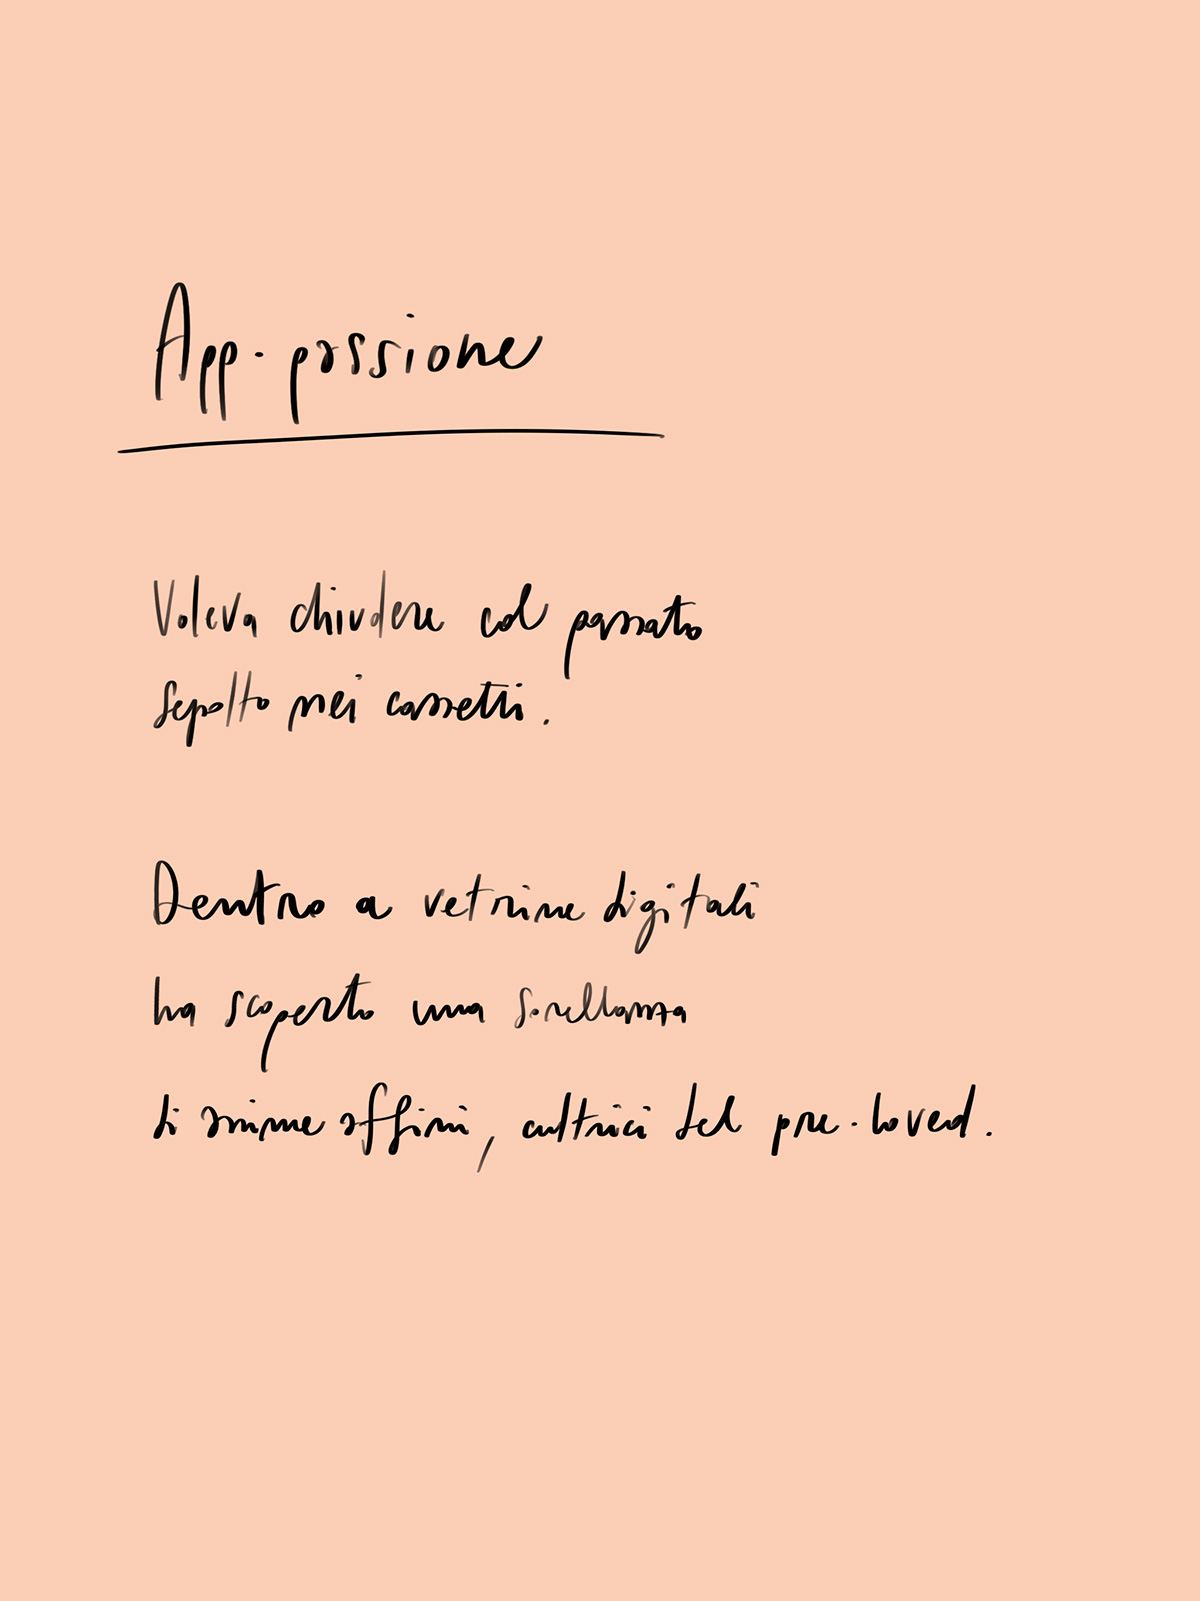 App-passione
Voleva chiudere col passato
sepolto nei cassetti.
Dentro a vetrine digitali
ha scoperto una sorellanza
di anime affini, cultrici del pre-loved.